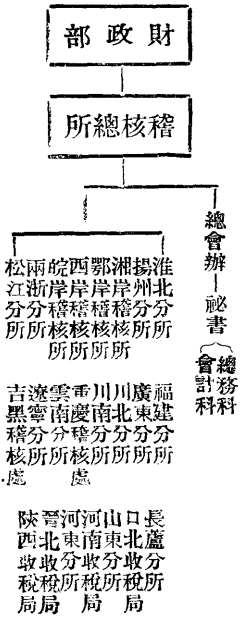 財政部
稽核總所
總會辦—祕書
總務科
會計科
淮北分所
揚州分所
湘岸稽核所
鄂岸稽核所
西岸稽核所
皖岸稽核所
兩浙分所
松江分所
福建分所
廣東分所
川北分所
川南分所
重慶稽核處
雲南分所
遼寧分所
吉黑稽核處
長蘆分所
口北收稅局
山東分所
河南收稅局
河東分所
晉北收稅局
陝西收稅局